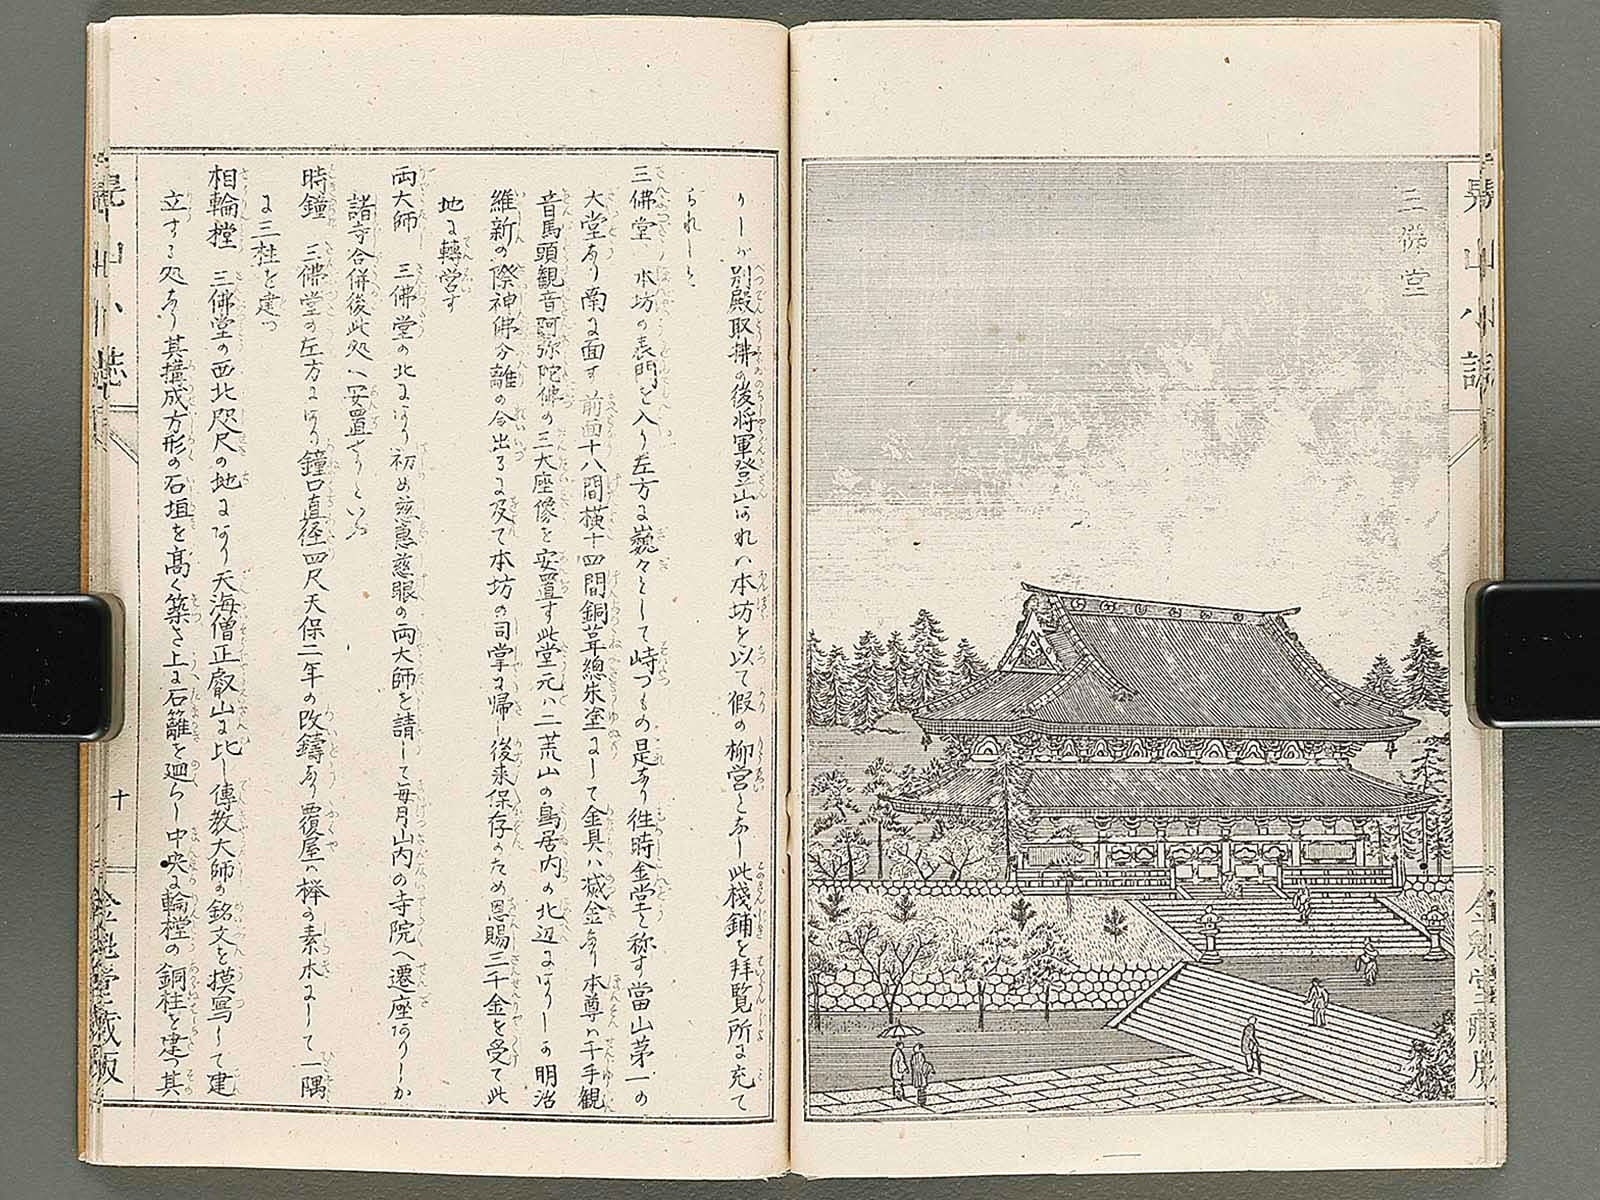 三佛堂
晃山小誌
うしが別殿取拂の後将軍登山あれハ本坊を以て假の柳営となし此棧鋪を拜覧所に充て
られしと
三佛堂 本坊の表門を入り左方に巍々として峙つもの是なり徃時金堂と称す當山第一の
大堂なり南に面す前面十八間横十四間銅葺總朱塗にして金具ハ滅金なり本尊ハ千手觀
音馬頭観音阿弥陀佛の三大座像を安置す此堂元ハ二荒山の鳥居内の北辺にありしが明治
維新の際神佛分離の令出るに及て本坊の司掌に帰し後来保存のため恩賜三千金を受て此
地に轉営す
両大師 三佛堂の北にあり初め慈惠慈眼の両大師を請して毎月山内の寺院へ遷座ありしか
諸寺合併後此処へ安置せりといふ
時鐘 三佛堂の左方にあり鐘口直径四尺天保二年の改鑄なり覆屋ハ欅の素木にして一隅
に三柱を建つ
相輪樘 三佛堂の西北咫尺の地にあり天海僧正叡山に比し傳教大師の銘文を摸写して建
立する処なり其搆成方形の石垣を高く築き上に石籬を廻らし中央に輪樘の銅柱を建つ其
晃山小誌
十
金魁堂蔵版